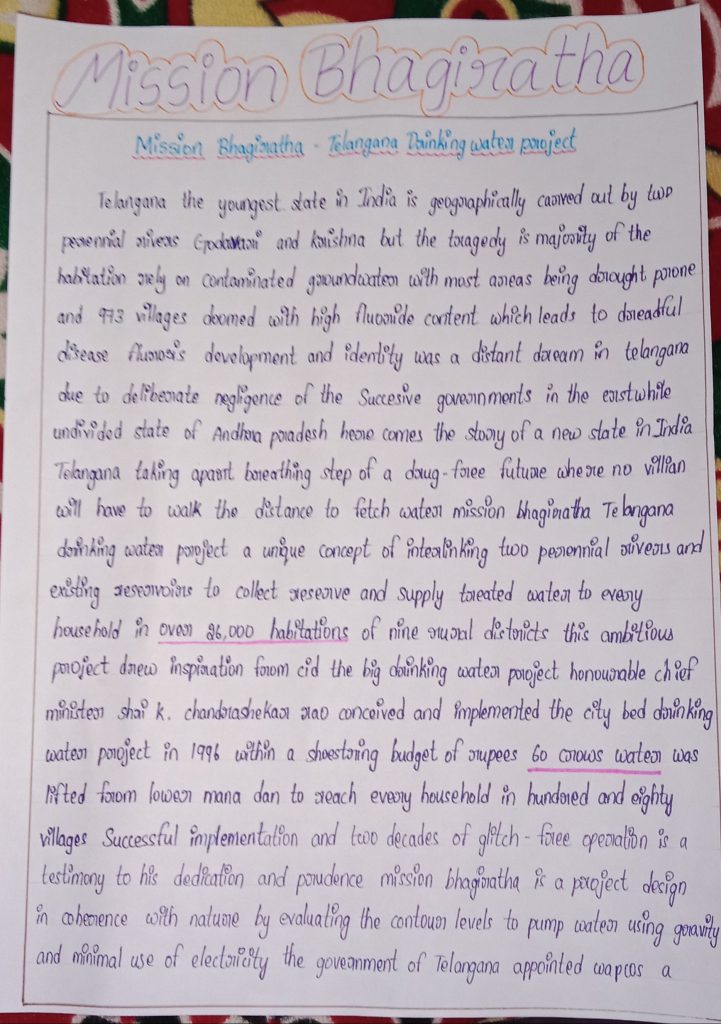 Mission Bhagiratha
Mission Bhagiratha - Telangana Drinking water project
Telangana the youngest state in India is geographically carved out by two
perennial rivers Godavari and krishna but the tragedy is majority of the
habitation rely on contaminated groundwater with most areas being drought prone
and 973 villages doomed with high fluoride content which leads to dreadful
disease flurosis development and identity was a distant dream in telangana
due to deliberate negligence of the Succesive governments in the erstwhile
undivided state of Andhra pradesh here comes the story of a new state in India
Telangana taking apart breathing step of a drug-free future where no villian
will have to walk the distance to fetch water mission bhagiratha Telangana
drinking water project a unique concept of interlinking two perennial rivers and
existing reservoirs to collect reserve and supply treated water to every
household in over 26,000 habitations of nine rural districts this ambitious
project drew inspiration from cid the big drinking water project honourable chief
minister shri k. chandrashekar rao conceived and implemented the city bed drinking
water project in 1996 within a shoestring budget of rupees 60 crows water was
lifted from lower mana dan to reach every household in hundred and eighty
villages Successful implementation and two decades of glitch-free operation is a
testimony to his dedication and prudence mission bhagiratha is a project design
in coherence with nature by evaluating the contour levels to pump water using gravity
and minimal use of electricity the government of Telangana appointed wapcos a